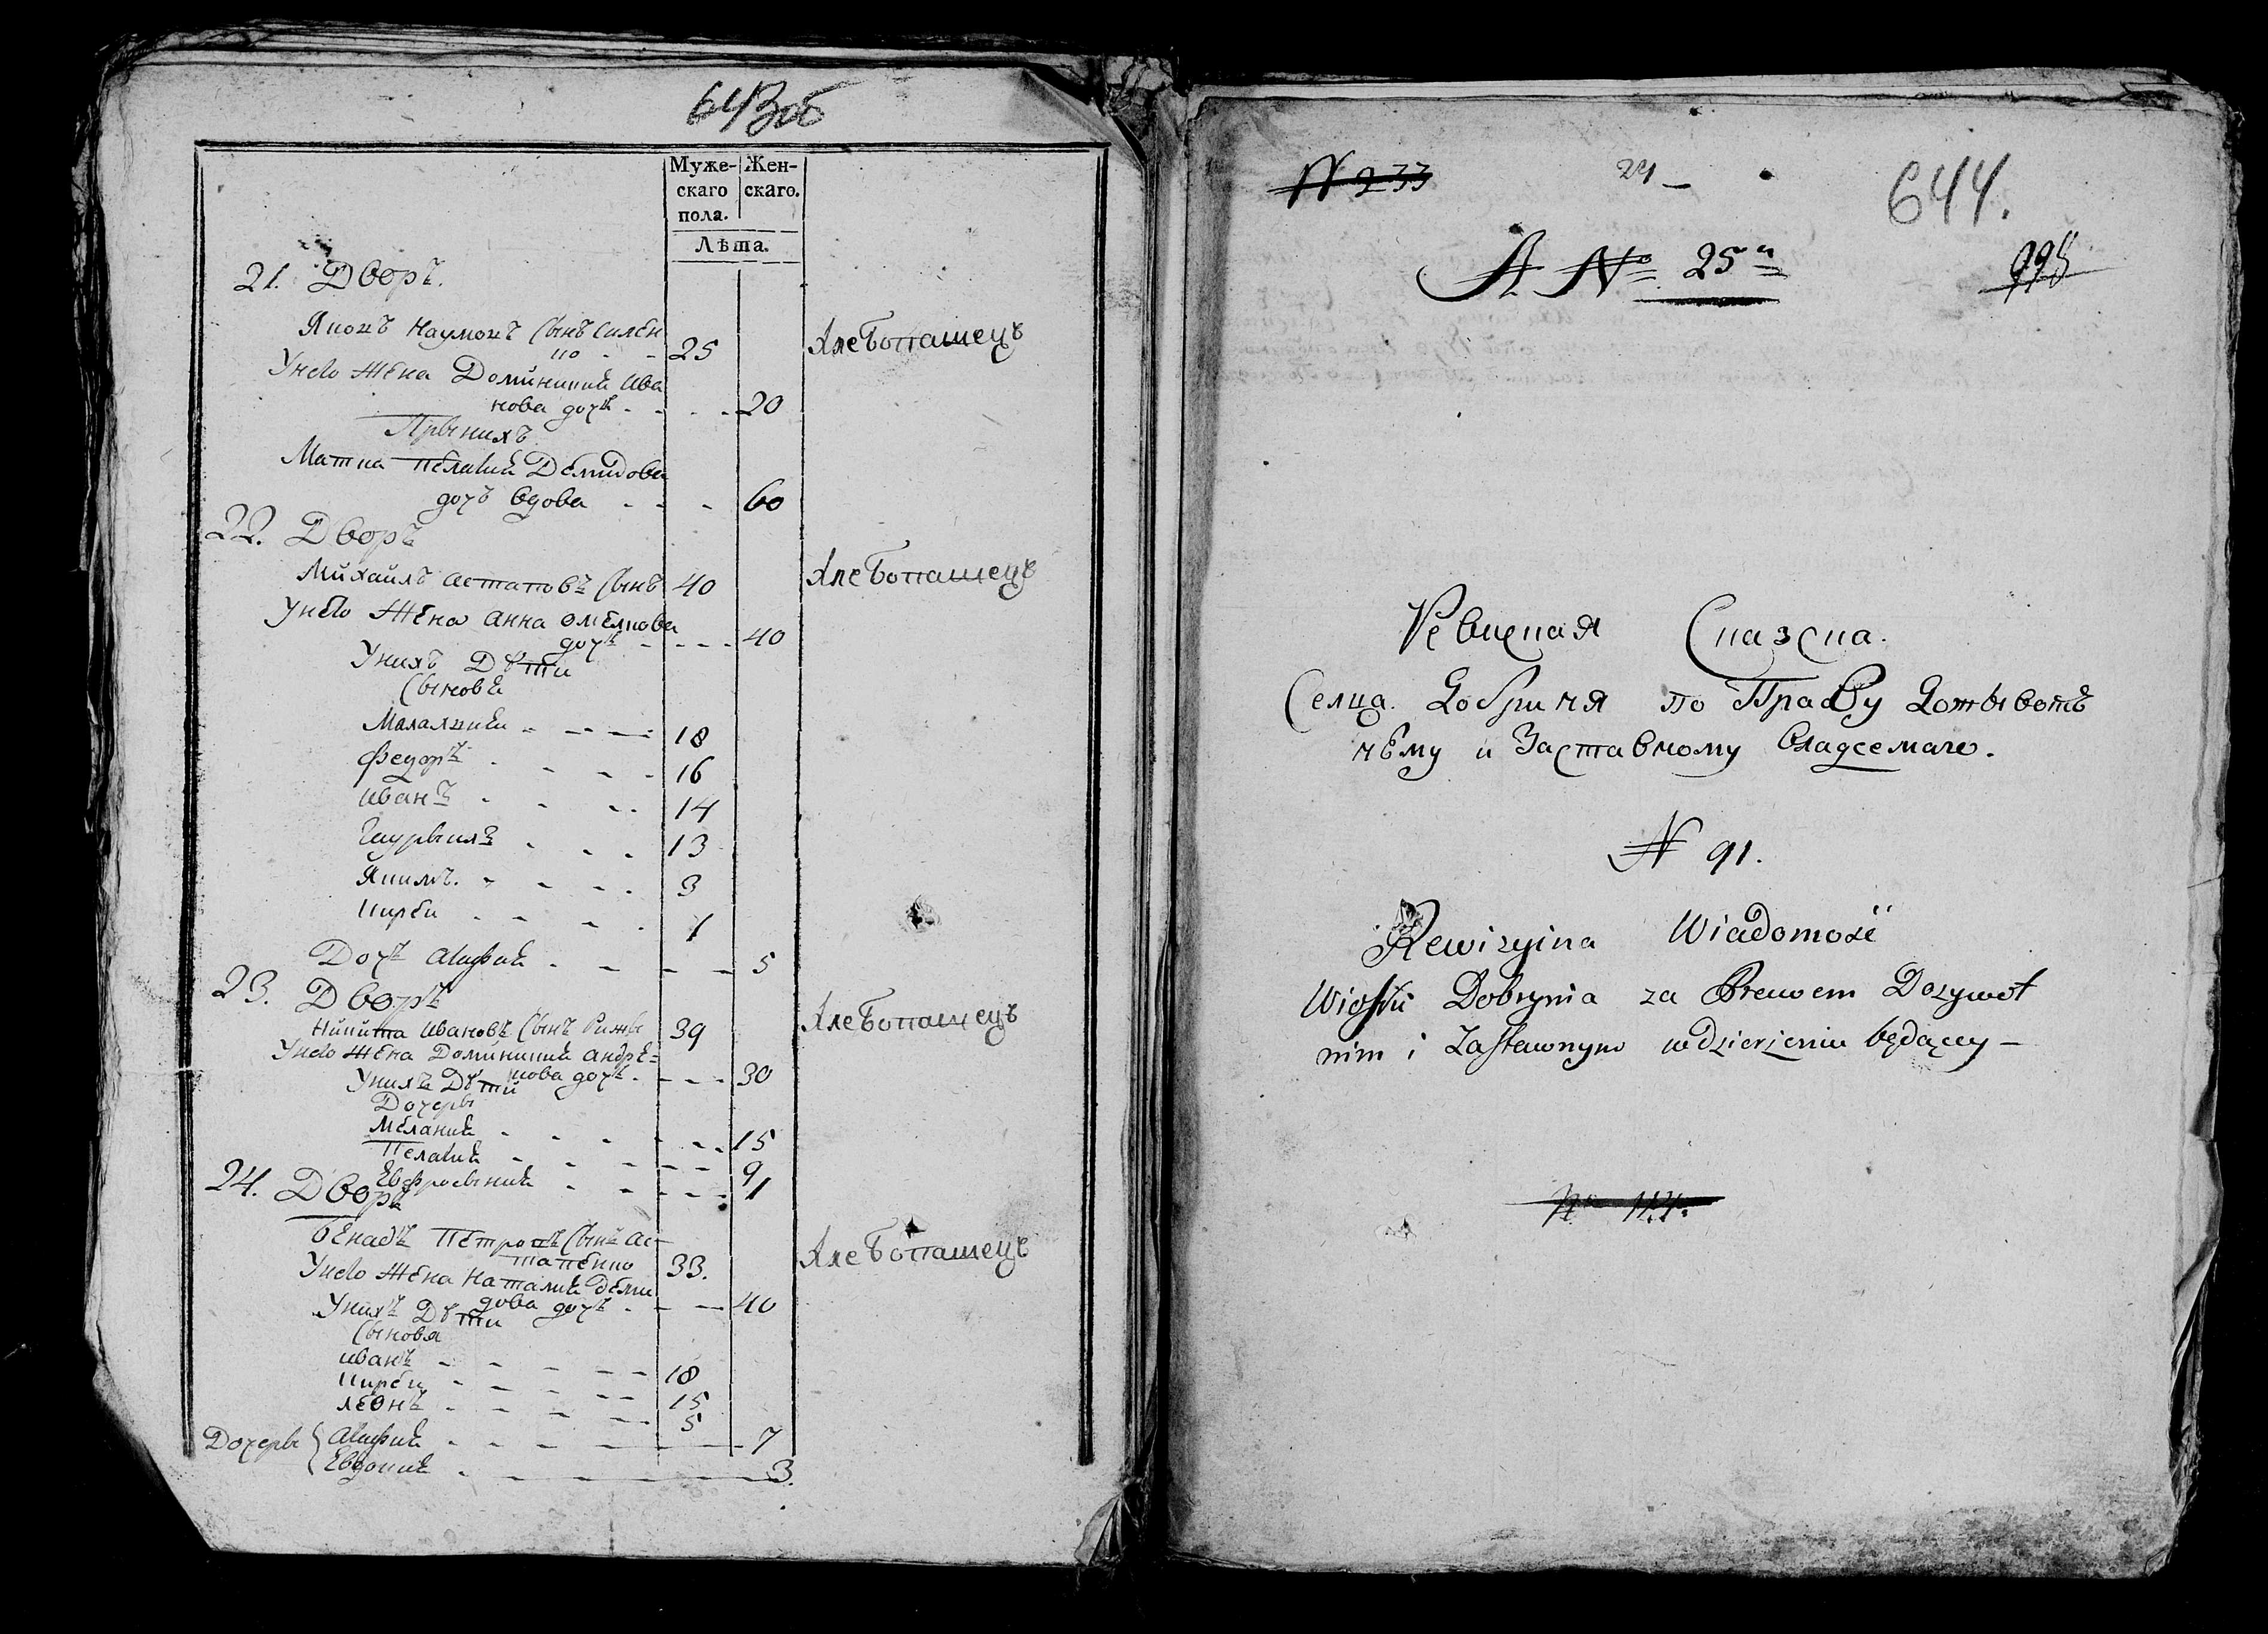 643об
Муже-
скаго
пола.
Жен-
скаго.
Лѣта.
21. Дворъ.
Якокъ Наумокъ Сынъ Силен
ко 25 Хлебопашецъ
Унего Жена Доминикия Ива
нова дочь 20
Прыныхъ
Матка Пелагия Демидова
дочъ вдова 60
22. Дворъ
Михайлъ Астаповъ Сынъ 40 Хлебопашецъ
Унего Жена Анна
дочъ 40
Унихъ Дѣти
Сыновя
18
Федоръ 16
Иванъ 14
13
Якимъ. 3
Кирей 1
Дочъ Агафия 5
23. Дворъ
Никита Ивановъ Сынъ 39 Хлебопашецъ
Унего Жена Доминикия Андре=
кова дочъ 30
Унихъ Дѣти
Дочеры
Мелания 15
Пелагия 9
Евфросыния 1
24. Дворъ
Бенадъ Петрокъ Сынъ Ас-
тапенко 33. Хлебопашецъ
Унего Жена Наталия Деми
дова дочъ 40
Унихъ Дѣти
Сыновя
Иванъ 18
Кирей 15
Леонъ 5
Дочеры Агафия 7
Евдокия 3.
N 233
24 -
644.
A No. 25
995
Ревиская Сказска.
Селца Добриня по Праву Дожывот
нему и Заставному
N 91.
Rewizyina Wiadomość
Wioski Dobrynia za Prawem Dozywot
nim i Zastawnym wdzierzeniu będącey -